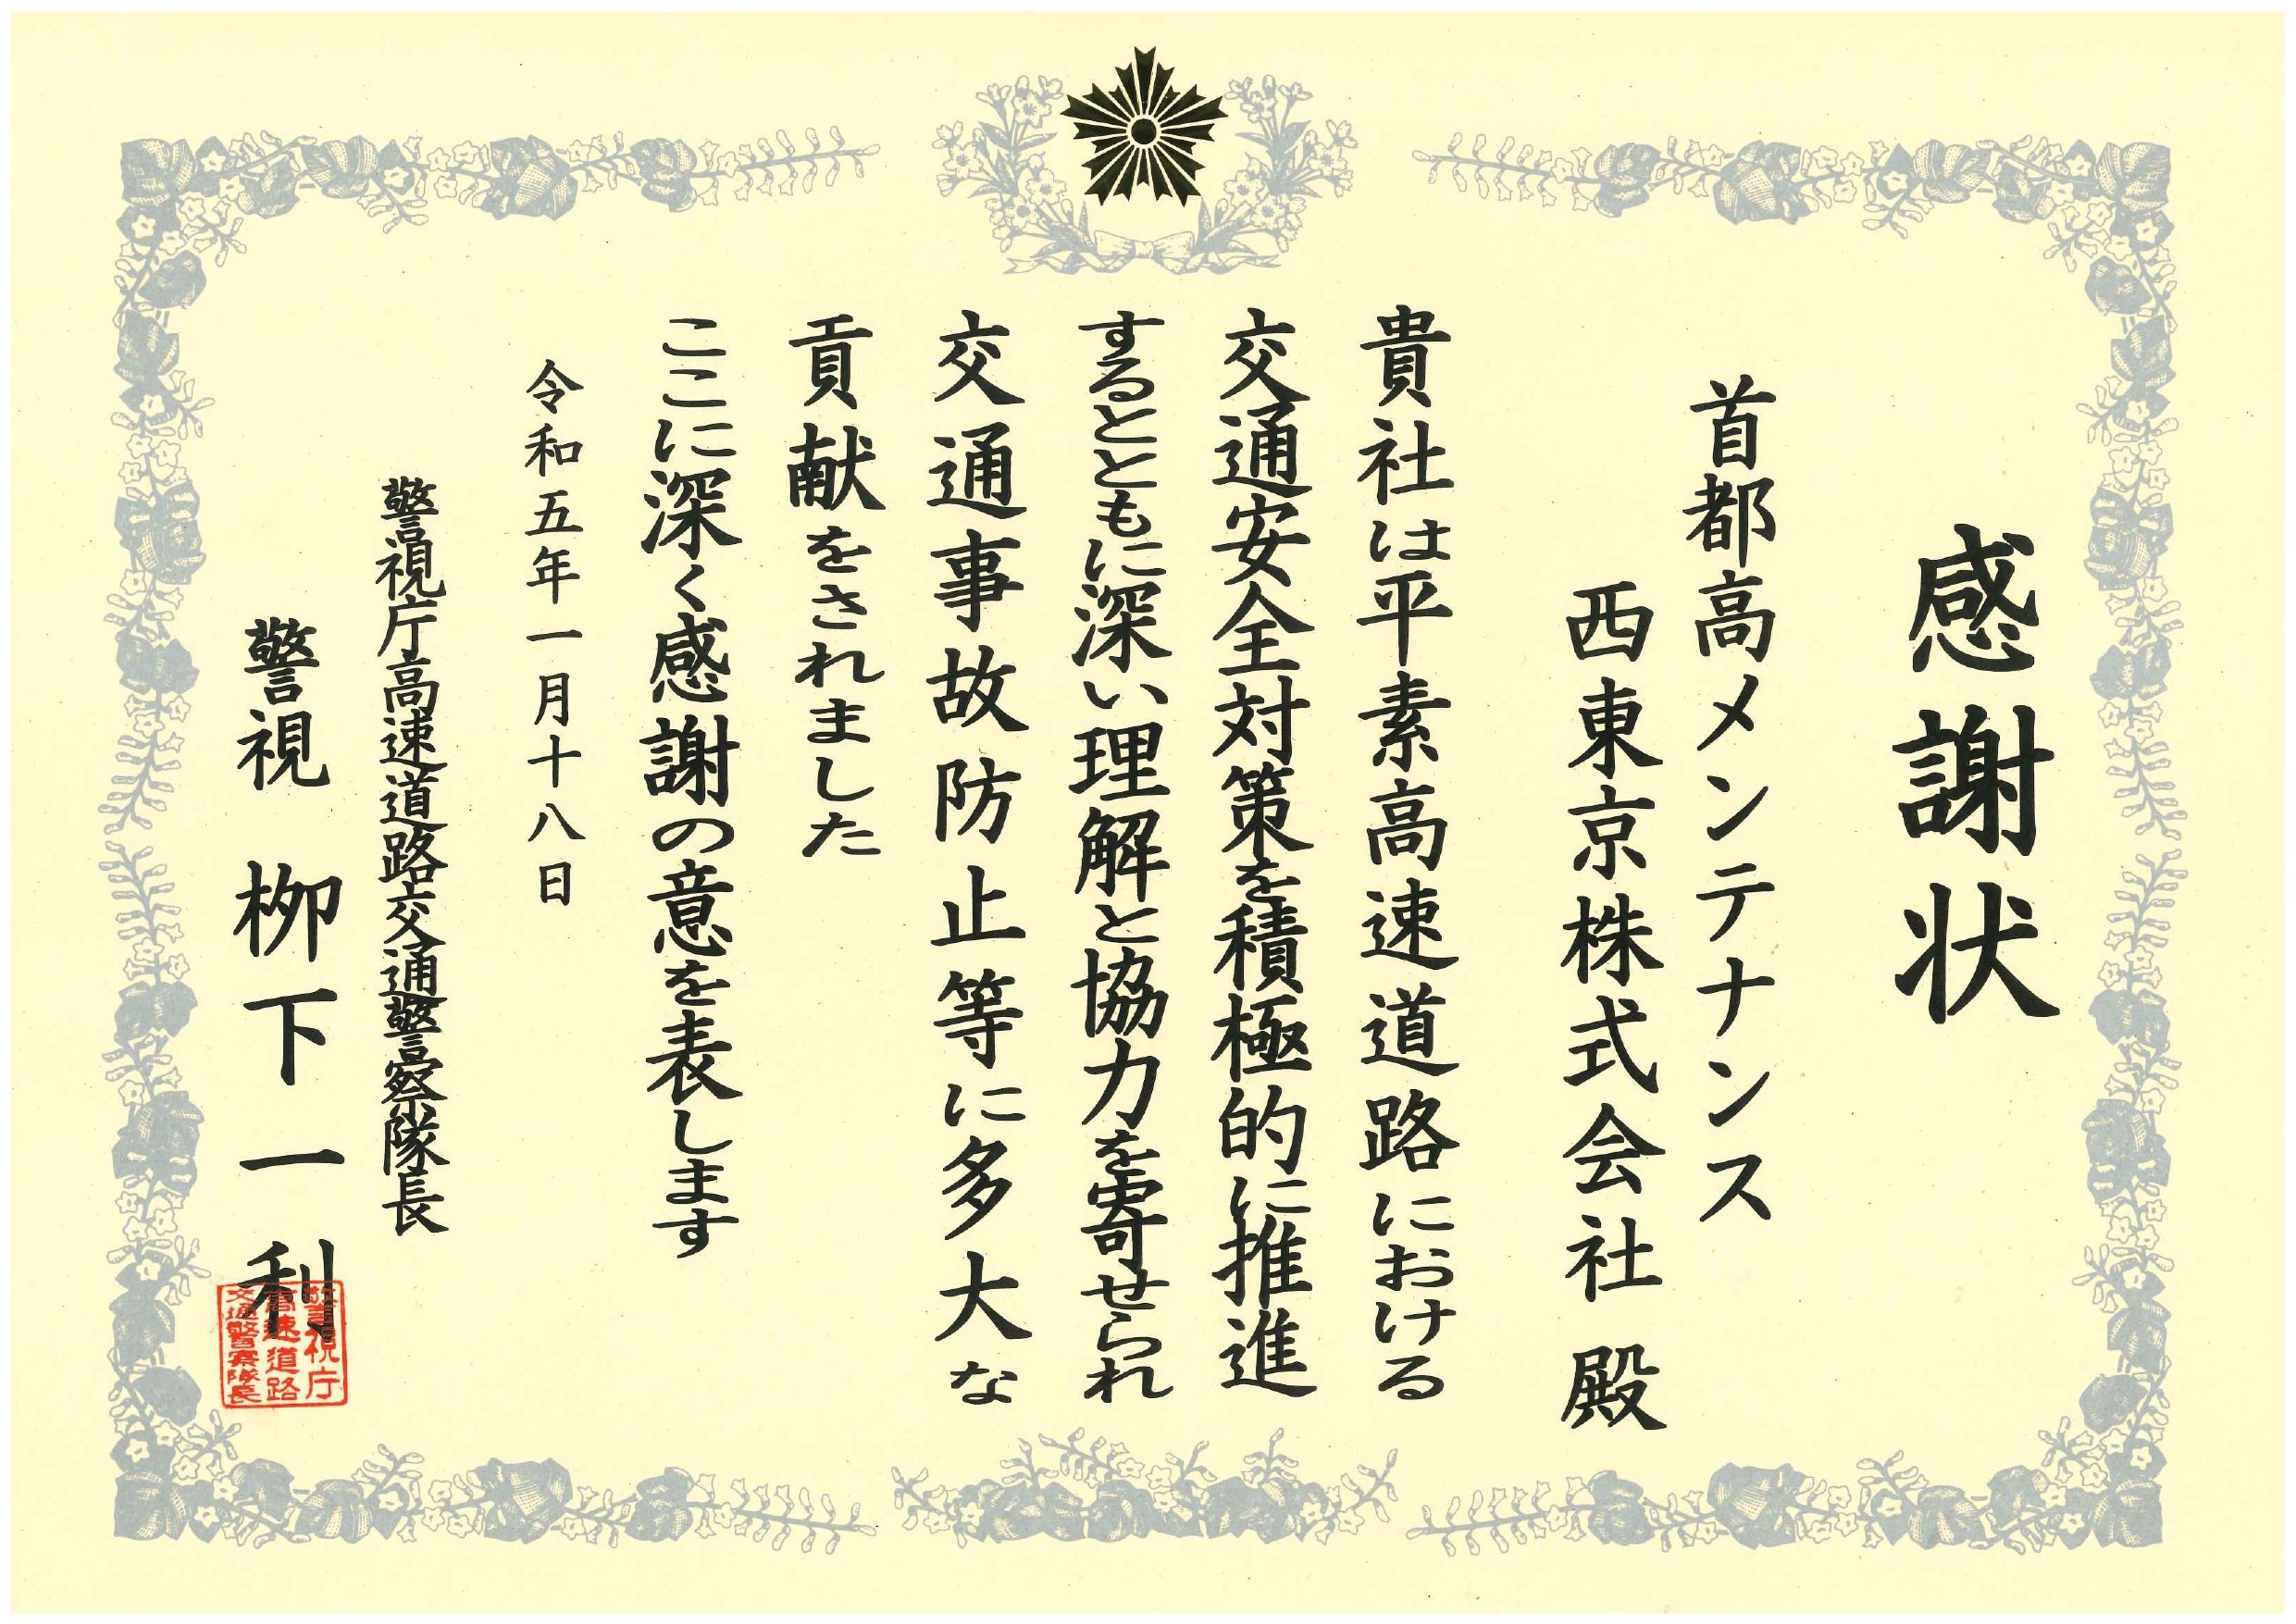 感謝状
首都高メンテナンス
西東京株式会社 殿
貴社は平素高速道路における
交通安全対策を積極的に推進
するとともに深い理解と協力を寄せられ
交通事故防止等に多大な
貢献をされました
ここに深く感謝の意を表します
令和五年一月十八日
警視庁高速道路交通警察隊長
警視 栁下一利
警視庁
高速道路
交通警察隊長